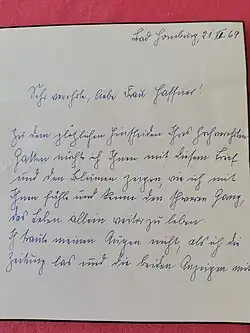 Bad Homburg, 21. IX. 69
Sehr verehrte, liebe Frau Haffner!
Zu dem plötzlichen Hinscheiden Ihres hochverehrten
Gatten möchte ich Ihnen mit diesem Brief
und den Blumen zeigen, wie ich mit
Ihnen fühle und kenne den schweren Gang,
das Leben allein weiter zu leben.
Ich traute meinen Augen nicht, als ich die
Zeitung las und die beiden Anzeigen mit